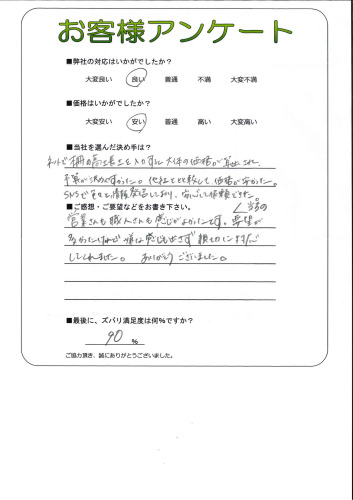 お客様アンケート
■弊社の対応はいかがでしたか?
大変良い 良い 普通 不満 大変不満
■価格はいかがでしたか?
大変安い 安い 普通 高い 大変高い
■当社を選んだ決め手は?
ネットで棚の高さ長さを入力すると大体の価格が算出され、
予算が決めやすかった。他社と比較して価格が安かった。
SNSで色々と情報発信しており、安心して依頼できた。
■ご感想・ご要望などをお書き下さい。
営業さんも職人さんも感じがよかったです。要望が
多かったけれど嫌な感じも出さず親切に対応
してくれました。ありがとうございました。
■最後に、ズバリ満足度は何%ですか?
90 %
ご協力頂き、誠にありがとうございました。